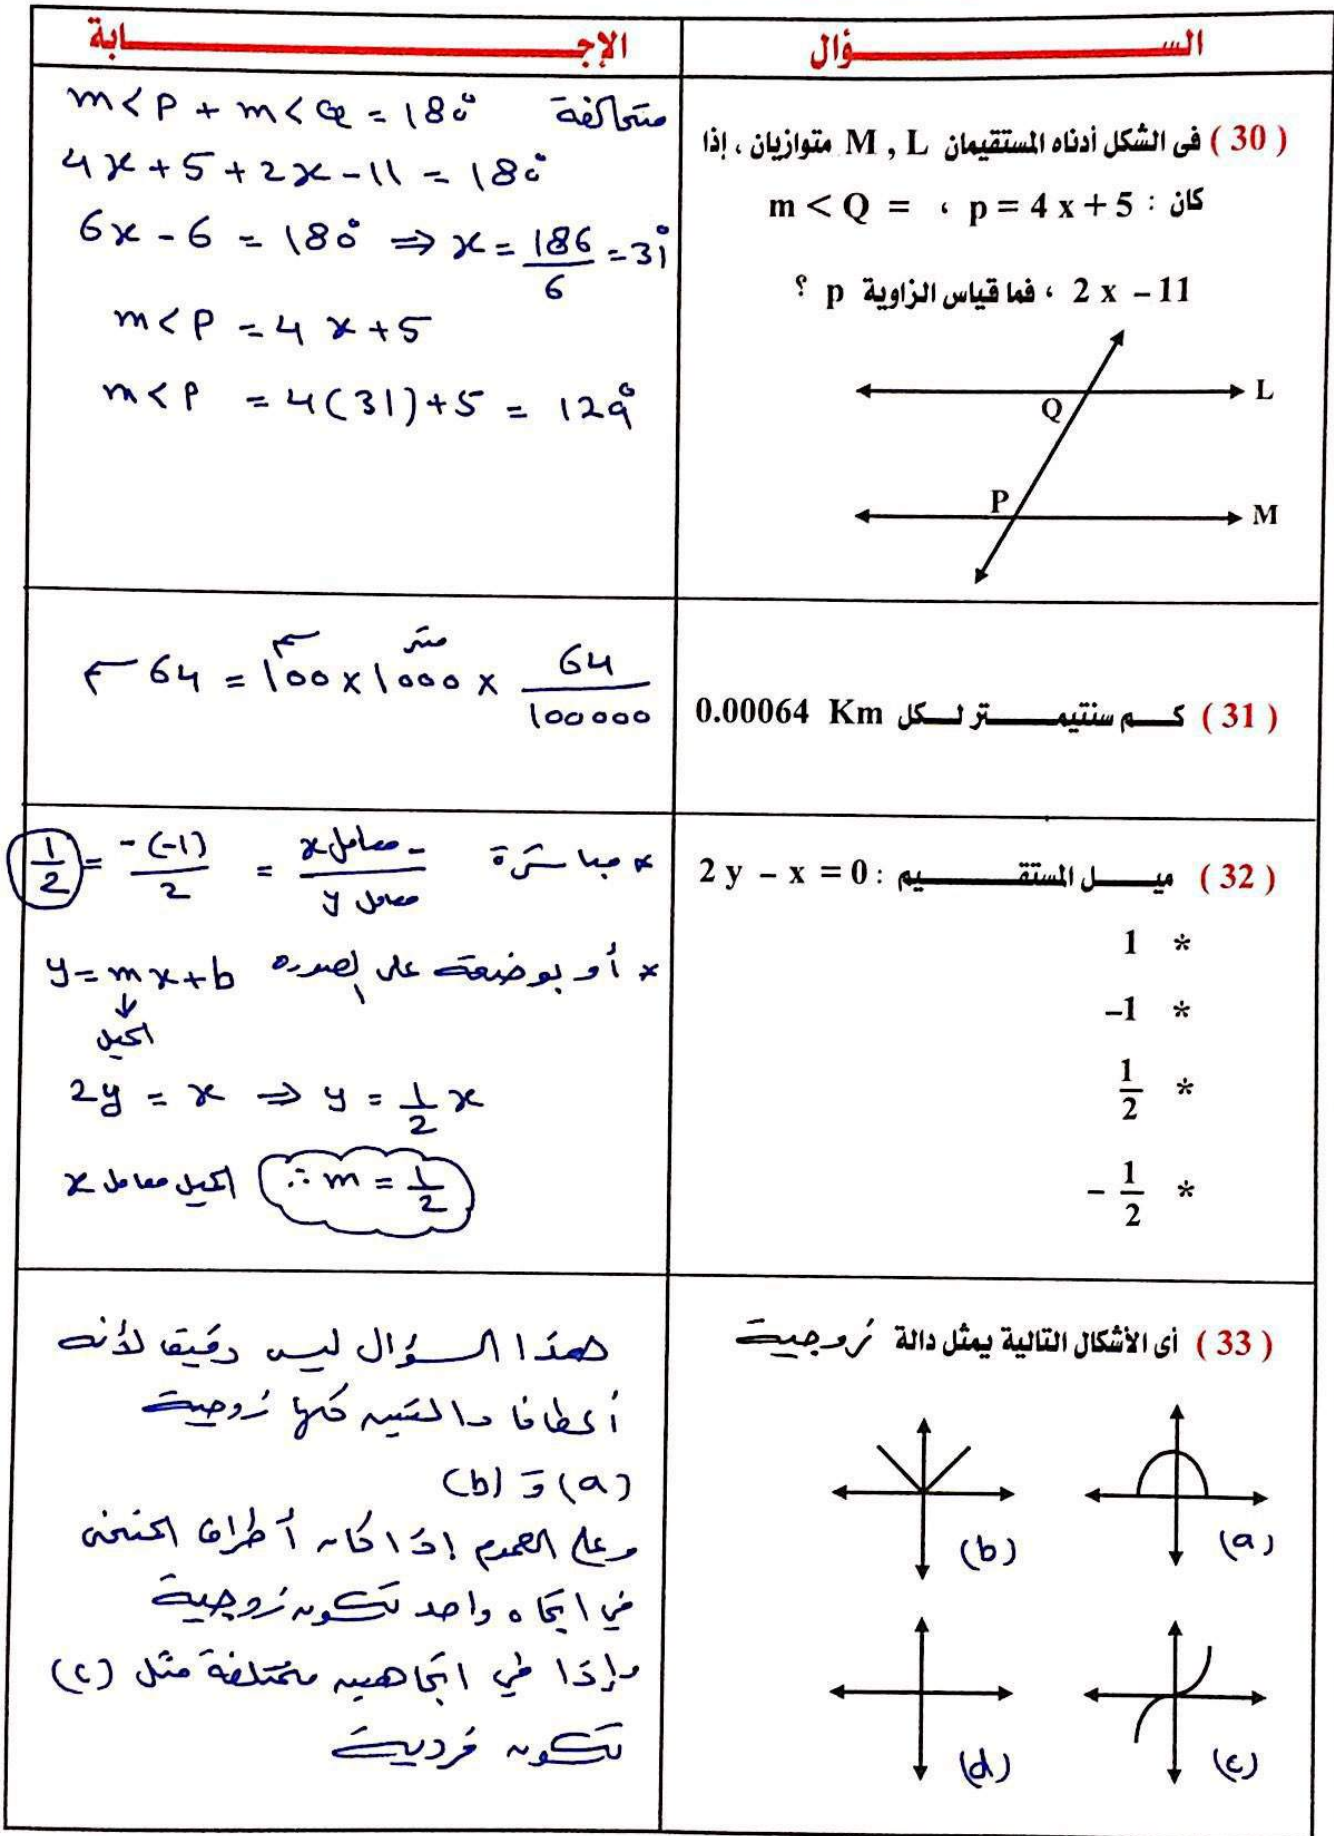 الســـؤال
الإجـــابة
( 30 ) فى الشكل أدناه المستقيمان M , L متوازيان ، إذا
كان : p = 4 x + 5 ، m < Q =
2 x – 11 ، فما قياس الزاوية p ؟
L
Q
P
M
متحالفة m<P + m<Q = 180°
4x + 5 + 2x - 11 = 180°
6x - 6 = 180° ⇒ x = 186/6 = 31°
m<P = 4x+5
m<P = 4(31)+5 = 129°
( 31 ) كـــم سنتيمـــــتر لـــكل 0.00064 Km
64/100000 × 1000 متر × 100 سم = 64 سم
( 32 ) ميـــــل المستقـــــــيم : 2 y – x = 0
* 1
* –1
* 1/2
* – 1/2
* مباشرة -معامل x/معامل y = -(-1)/2 = 1/2
* أو بوضعه على الصورة y = mx+b
↓
الميل
2y = x ⇒ y = 1/2 x
∴ m = 1/2 الميل معامل x
( 33 ) أى الأشكال التالية يمثل دالة زوجية
(a)
(b)
(c)
(d)
هذا السؤال ليس دقيق لأنه
أعطانا دالتين كلها زوجية
(a) و (b)
وعلى العموم إذا كان أطراف المنحنى
في اتجاه واحد تكون زوجية
وإذا في اتجاهين مختلفة مثل (c)
تكون فردية